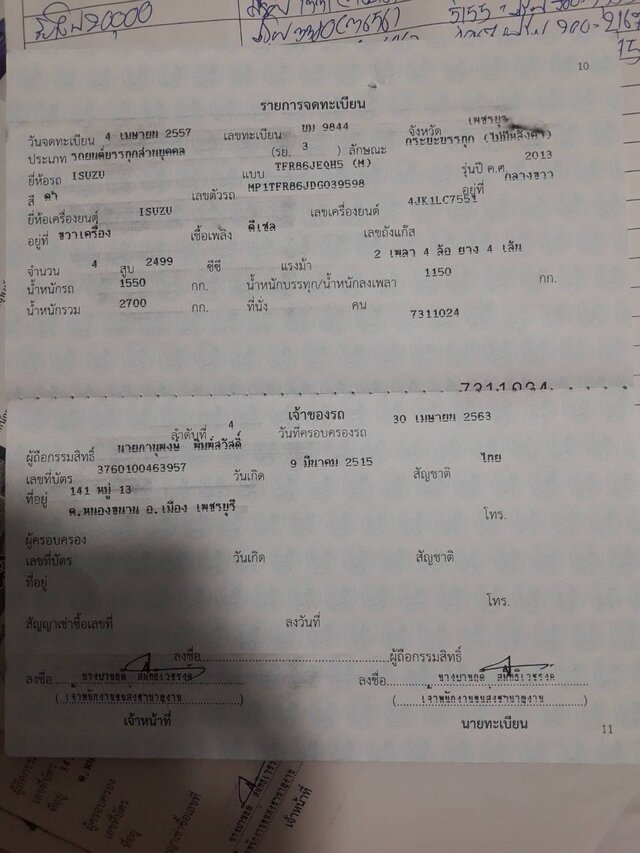 10
รายการจดทะเบียน
วันจดทะเบียน 4 เมษายน 2557 เลขทะเบียน ยม 9844 จังหวัด เพชรบุรี
ประเภท รถยนต์บรรทุกส่วนบุคคล (รย. 3 ) ลักษณะ กระบะบรรทุก (ไม่มีหลังคา)
ยี่ห้อรถ ISUZU แบบ TFR86JEQH5 (M) รุ่นปี ค.ศ. 2013
สี ดำ เลขตัวรถ MP1TFR86JDG039598 อยู่ที่ กลางขวา
ยี่ห้อเครื่องยนต์ ISUZU เลขเครื่องยนต์ 4JK1LC7551
อยู่ที่ ขวาเครื่อง เชื้อเพลิง ดีเซล เลขถังแก๊ส
จำนวน 4 สูบ 2499 ซีซี แรงม้า 2 เพลา 4 ล้อ ยาง 4 เส้น
น้ำหนักรถ 1550 กก. น้ำหนักบรรทุก/น้ำหนักลงเพลา 1150 กก.
น้ำหนักรวม 2700 กก. ที่นั่ง คน 7311024
7311024
เจ้าของรถ
ลำดับที่ 4 วันที่ครอบครองรถ 30 เมษายน 2563
ผู้ถือกรรมสิทธิ์ นายภานุพงษ์ พิมพ์สวัสดิ์
เลขที่บัตร 3760100463957 วันเกิด 9 มีนาคม 2515 สัญชาติ ไทย
ที่อยู่ 141 หมู่ 13
ต.หนองขนาน อ.เมือง เพชรบุรี
โทร.
ผู้ครอบครอง
เลขที่บัตร วันเกิด สัญชาติ
ที่อยู่
โทร.
สัญญาเช่าซื้อเลขที่ ลงวันที่
ลงชื่อ ผู้ถือกรรมสิทธิ์
ลงชื่อ ลงชื่อ
( เจ้าพนักงานขนส่งชำนาญงาน ) ( เจ้าพนักงานขนส่งชำนาญงาน )
เจ้าหน้าที่ นายทะเบียน
11